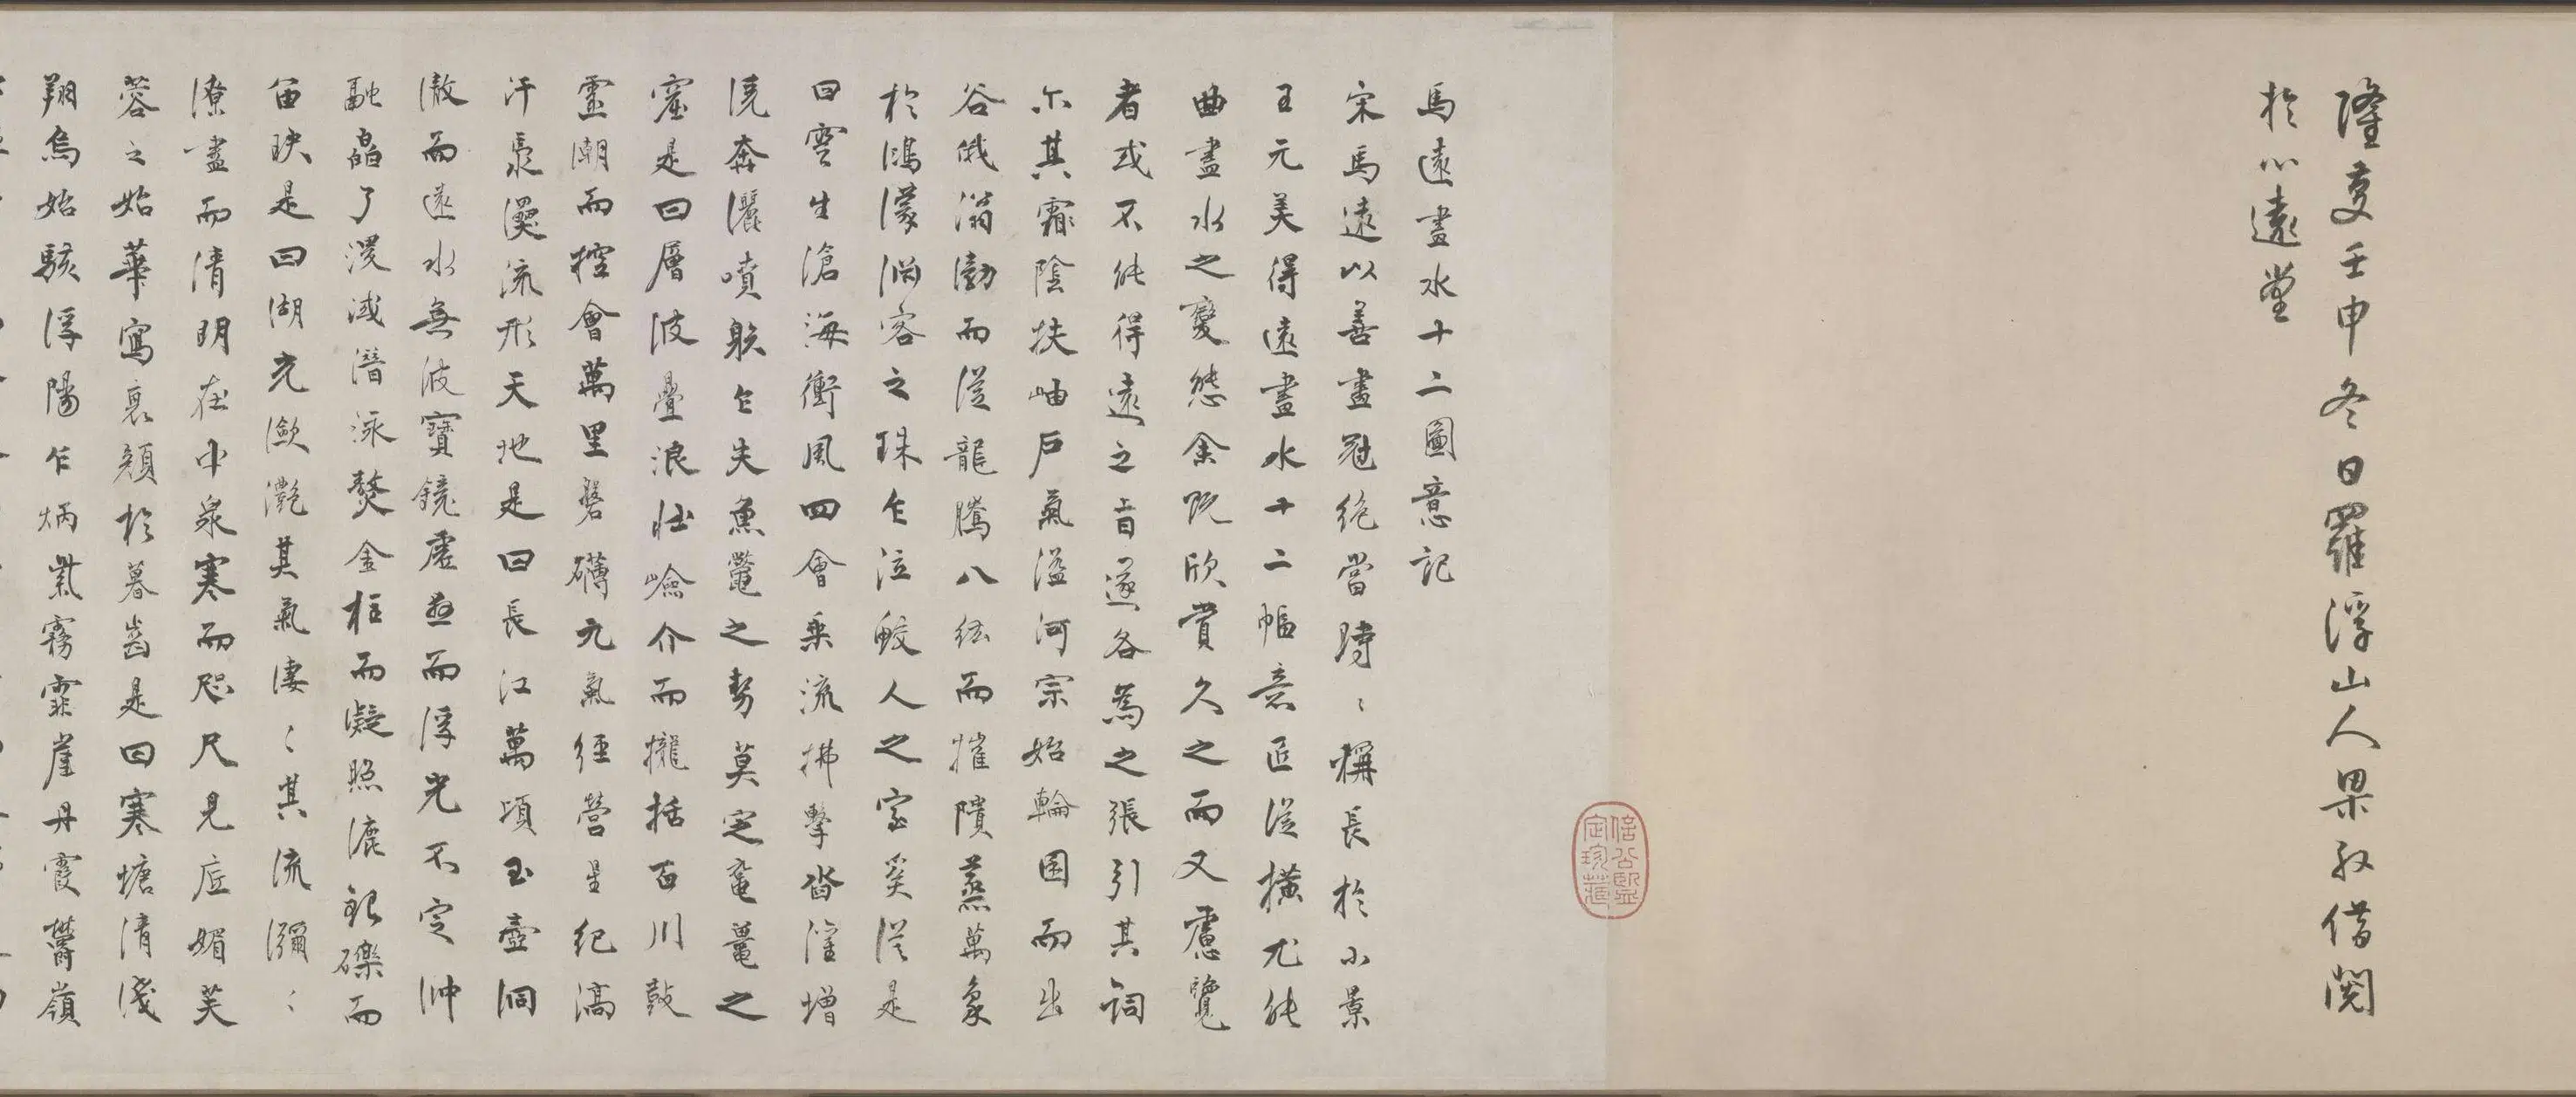 隆慶壬申冬日羅浮山人果敬借閱
於心遠堂
馬遠畫水十二圖意記
宋馬遠以善畫冠絶當時〻稱長於小景
王元美得遠畫水十二幅意匠従横尤能
曲盡水之變態余既欣賞久之而又慮覽
者或不能得遠之旨遂各為之張引其詞
尓其霏陰扶岫戶氣溢河宗始輪囷而出
谷俄滃渤而従龍騰八紘而摧隤蒸萬象
於鴻濛淵客之珠乍泣鮫人之室奚従是
曰雲生滄海衝風四會乗流拂擊沓漼增
澆奔灑噴躰乍失魚鼈之勢莫定黿鼉之
窟是曰層波疊浪壯崄介而攏括百川鼓
靈潮而控會萬里磐礴元氣経營星紀滈
汗㵘溰流形天地是曰長江萬頃玉壺洞
澈而遠水無波寶鏡虛益而浮光不定沖
融皛了淡滅潛泳熬金柱而凝照漉銀礫而
留映是曰湖光瀲灔其氣凄〻其流瀰〻
潦盡而清明在中泉寒而咫尺見底媚芙
蓉之始華寫衰顏於暮齒是曰寒塘清淺
翔烏始駭浮陽乍炳紫氣霧霏崖丹霞鬱嶺
信公鑒定珍藏